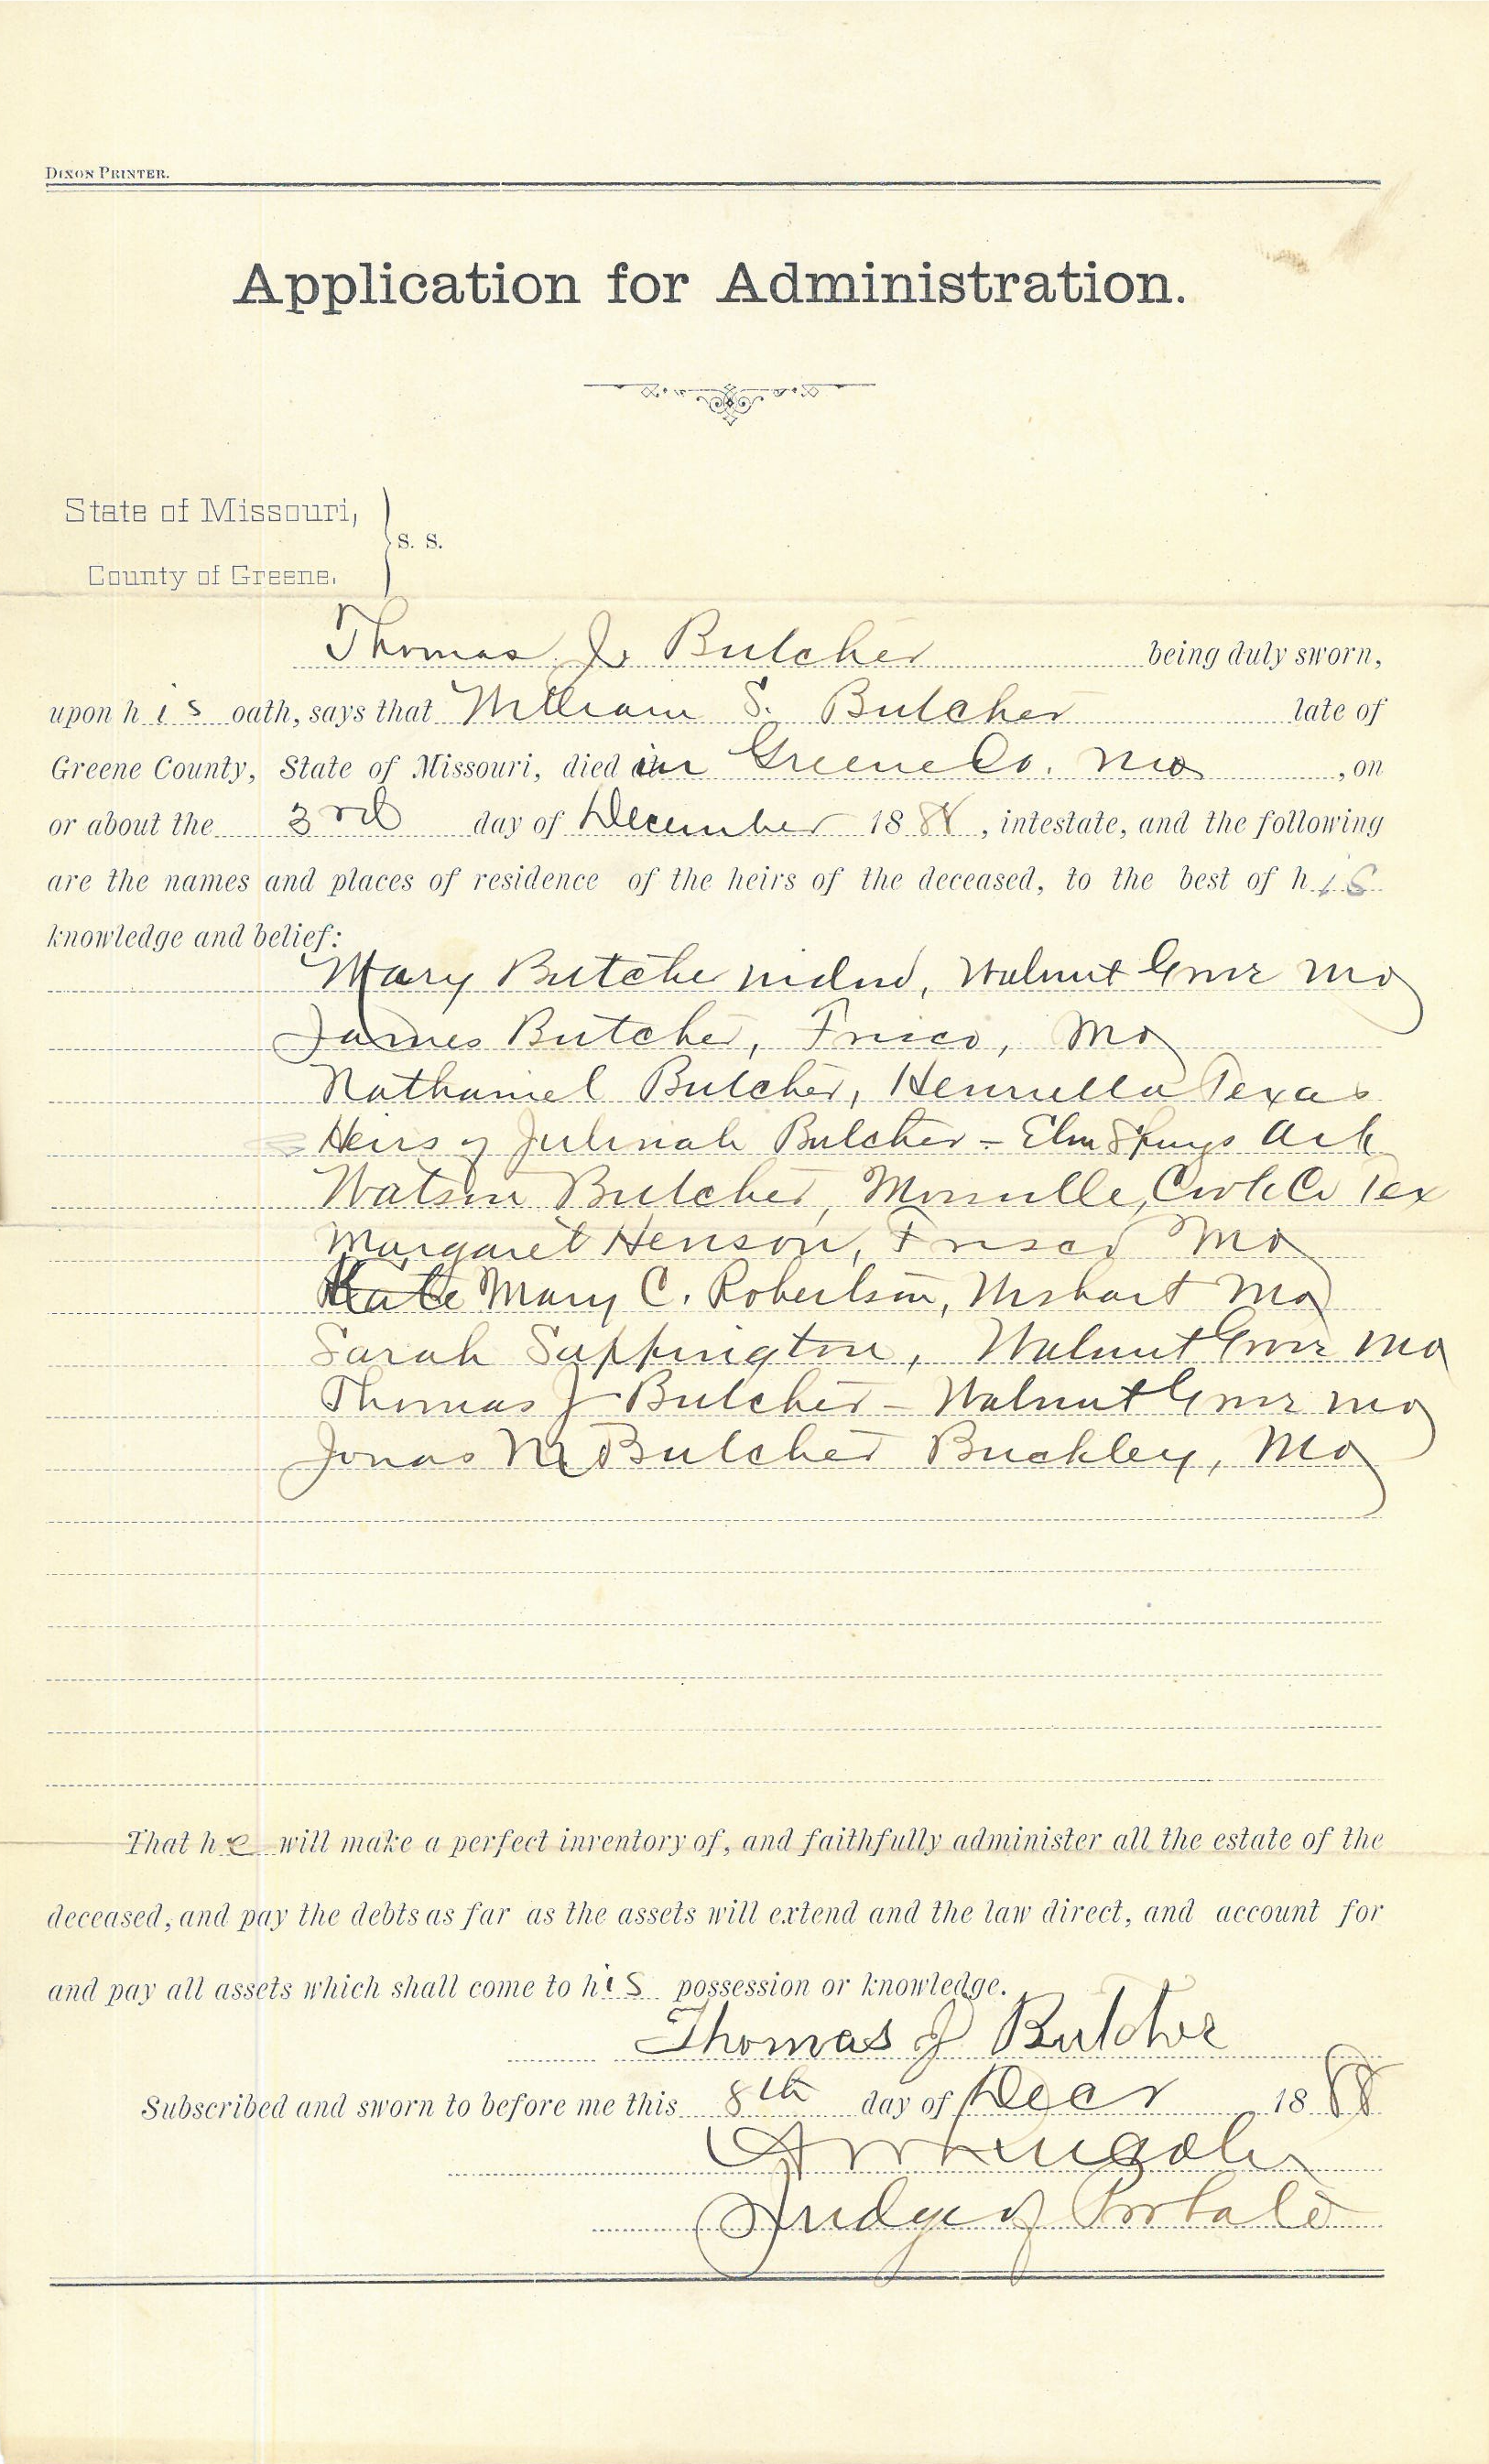 DIXON PRINTER.
Application for Administration.
State of Missouri,
S. S.
County of Greene.
Thomas J. Butcher being duly sworn,
upon his oath, says that William S. Butcher late of
Greene County, State of Missouri, died in Greene Co. Mo , on
or about the 3rd day of December 1888, intestate, and the following
are the names and places of residence of the heirs of the deceased, to the best of his
knowledge and belief:
Mary Butche widow, Walnut Grove Mo
James Butcher, Frisco, Mo
Nathaniel Butcher, Henrietta Texas
Heirs of Butcher - Elm Springs Ark
Watson Butcher, Cook Co Tex
Margaret Henson, Frisco Mo
Kate Mary C. Robertson, Wishart Mo
Sarah Sappington, Walnut Grove Mo
Thomas J Butcher - Walnut Grove Mo
Jonas M Butcher Buckley, Mo
That he will make a perfect inventory of, and faithfully administer all the estate of the
deceased, and pay the debts as far as the assets will extend and the law direct, and account for
and pay all assets which shall come to his possession or knowledge.
Thomas J Butcher
Subscribed and sworn to before me this 8th day of Decr 1888
Judge of Probate